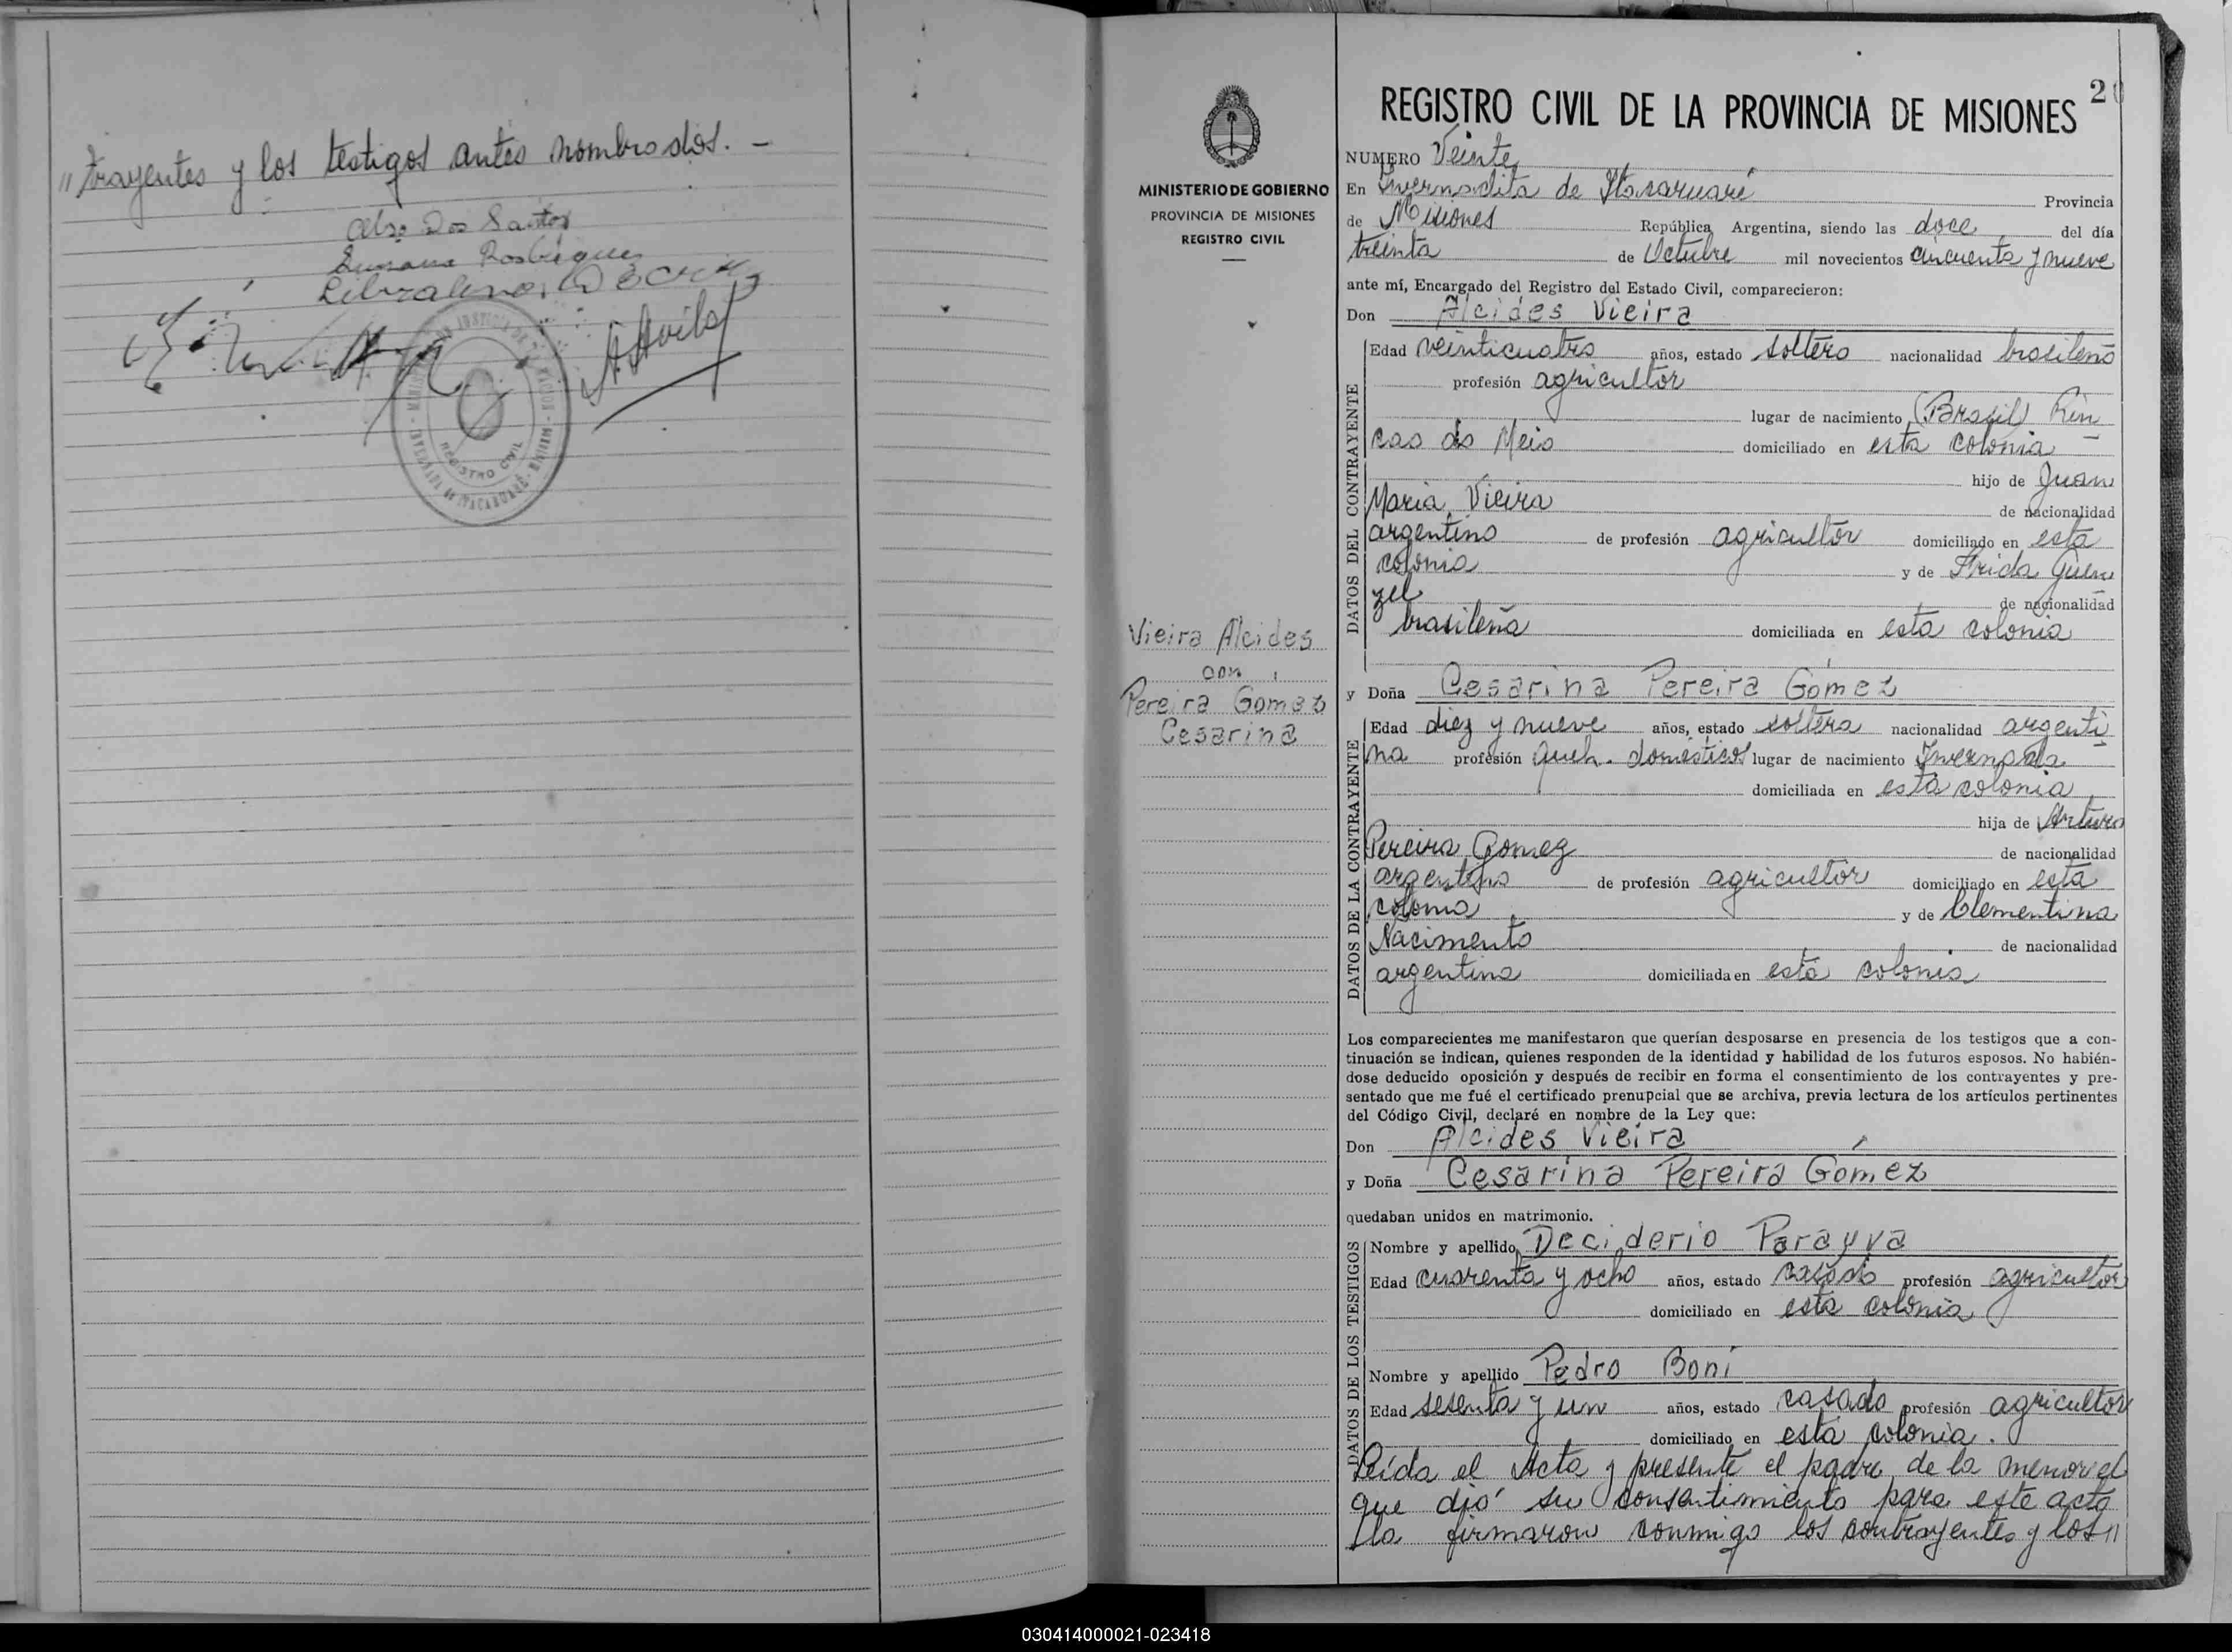 " trayentes y los testigos antes nombrados. -
Dos Santos
Susana Rodriguez
MINISTERIO DE GOBIERNO
PROVINCIA DE MISIONES
REGISTRO CIVIL
Vieira Alcides
con
Pereira Gomez
Cesarina
20
REGISTRO CIVIL DE LA PROVINCIA DE MISIONES
NUMERO Veinte
En Invernadita de Itacaruaré Provincia
de Misiones República Argentina, siendo las doce del día
treinta de Octubre mil novecientos cincuenta y nueve
ante mí, Encargado del Registro del Estado Civil, comparecieron:
Don Alcides Vieira
DATOS DEL CONTRAYENTE
Edad veinticuatro años, estado soltero nacionalidad brasileño
profesión agricultor
lugar de nacimiento (Brasil) Rin
cao do Meio domiciliado en esta colonia
hijo de Juan
Maria Vieira de nacionalidad
argentino de profesión agricultor domiciliado en esta
colonia y de Frida Guen
zel de nacionalidad
brasileña domiciliada en esta colonia
y Doña Cesarina Pereira Gómez
DATOS DE LA CONTRAYENTE
Edad diez y nueve años, estado soltera nacionalidad argenti
na profesión queh. domésticos lugar de nacimiento Invernada
domiciliada en esta colonia
hija de Arturo
Pereira Gomez de nacionalidad
argentino de profesión agricultor domiciliado en esta
colonia y de Clementina
Nacimento de nacionalidad
argentina domiciliada en esta colonia
Los comparecientes me manifestaron que querían desposarse en presencia de los testigos que a con-
tinuación se indican, quienes responden de la identidad y habilidad de los futuros esposos. No habién-
dose deducido oposición y después de recibir en forma el consentimiento de los contrayentes y pre-
sentado que me fué el certificado prenupcial que se archiva, previa lectura de los artículos pertinentes
del Código Civil, declaré en nombre de la Ley que:
Don Alcides Vieira
y Doña Cesarina Pereira Gómez
quedaban unidos en matrimonio.
DATOS DE LOS TESTIGOS
Nombre y apellido Deciderio Parayva
Edad cuarenta y ocho años, estado casado profesión agricultor
domiciliado en esta colonia
Nombre y apellido Pedro Boni
Edad sesenta y un años, estado casado profesión agricultor
domiciliado en esta colonia.
Leída el Acta y presente el padre de la menor el
que dió su consentimiento para este acto
la firmaron conmigo los contrayentes y los "
030414000021-023418